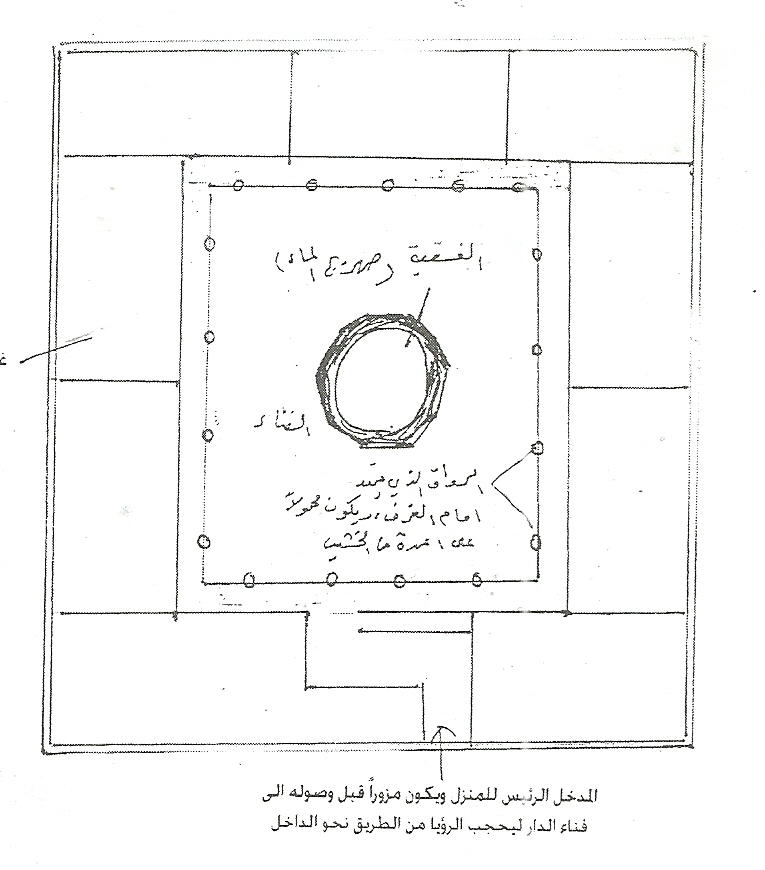 الفسقية (صهريج الماء)
غ
الفناء
الرواق الذي يمتد
امام الغرف، ويكون محمولاً
على اعمدة من الخشب
المدخل الرئيس للمنزل ويكون مزوراً قبل وصوله الى
فناء الدار ليحجب الرؤيا من الطريق نحو الداخل